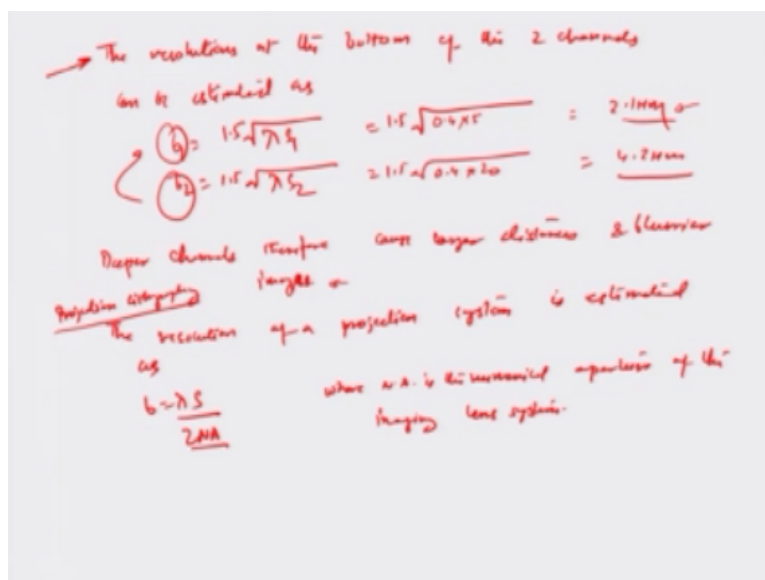 The resolutions at the bottom of the 2 channels
can be estimated as
b₁ = 1.5√λS₁ = 1.5√0.4×5 = 2.1μm
b₂ = 1.5√λS₂ = 1.5√0.4×20 = 4.2μm
Deeper channels therefore cause larger distances & blurrier
images
Projection lithography
The resolution of a projection system is estimated
as
b = λS / 2NA where N.A. is the numerical aperture of the
imaging lens system.